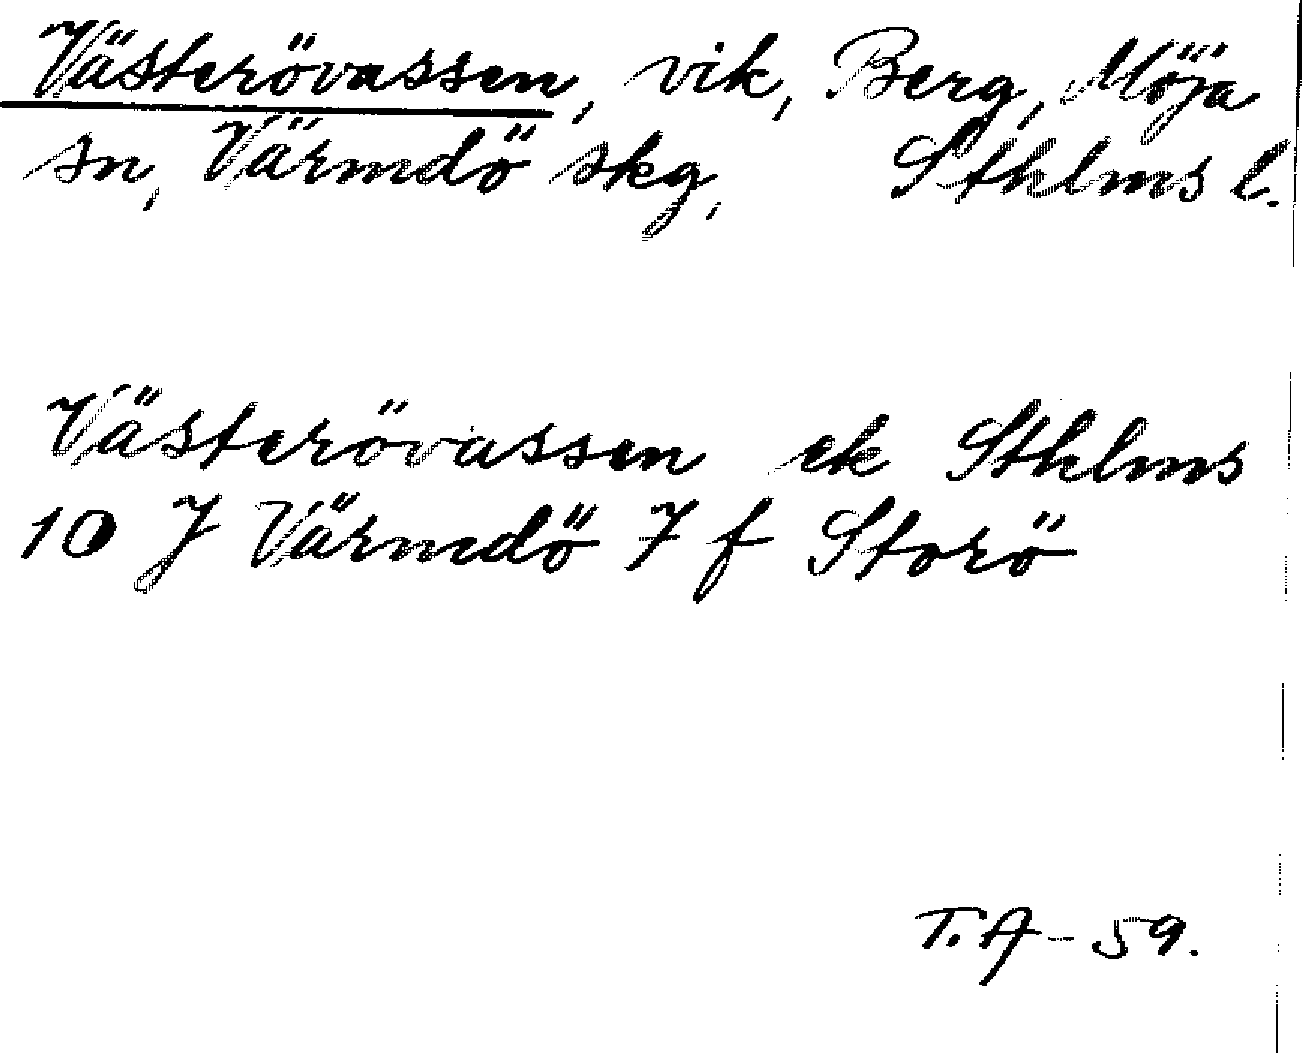 Västerövassen, vik, Berg, Möja
sn, Värmdö skg, Sthlms l.
Västerövassen ek Sthlms
10 J Värmdö 7 f Storö
T.A - 59.